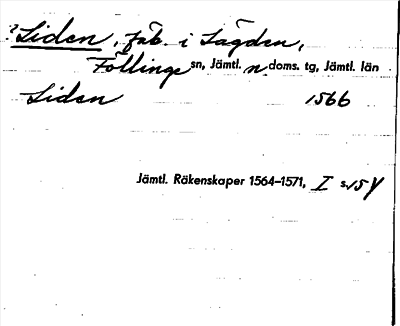 ?Liden, fäb. i Lagden,
Föllinge sn, Jämtl. n doms. tg, Jämtl. län
Liden 1566
Jämtl. Räkenskaper 1564–1571, I s.